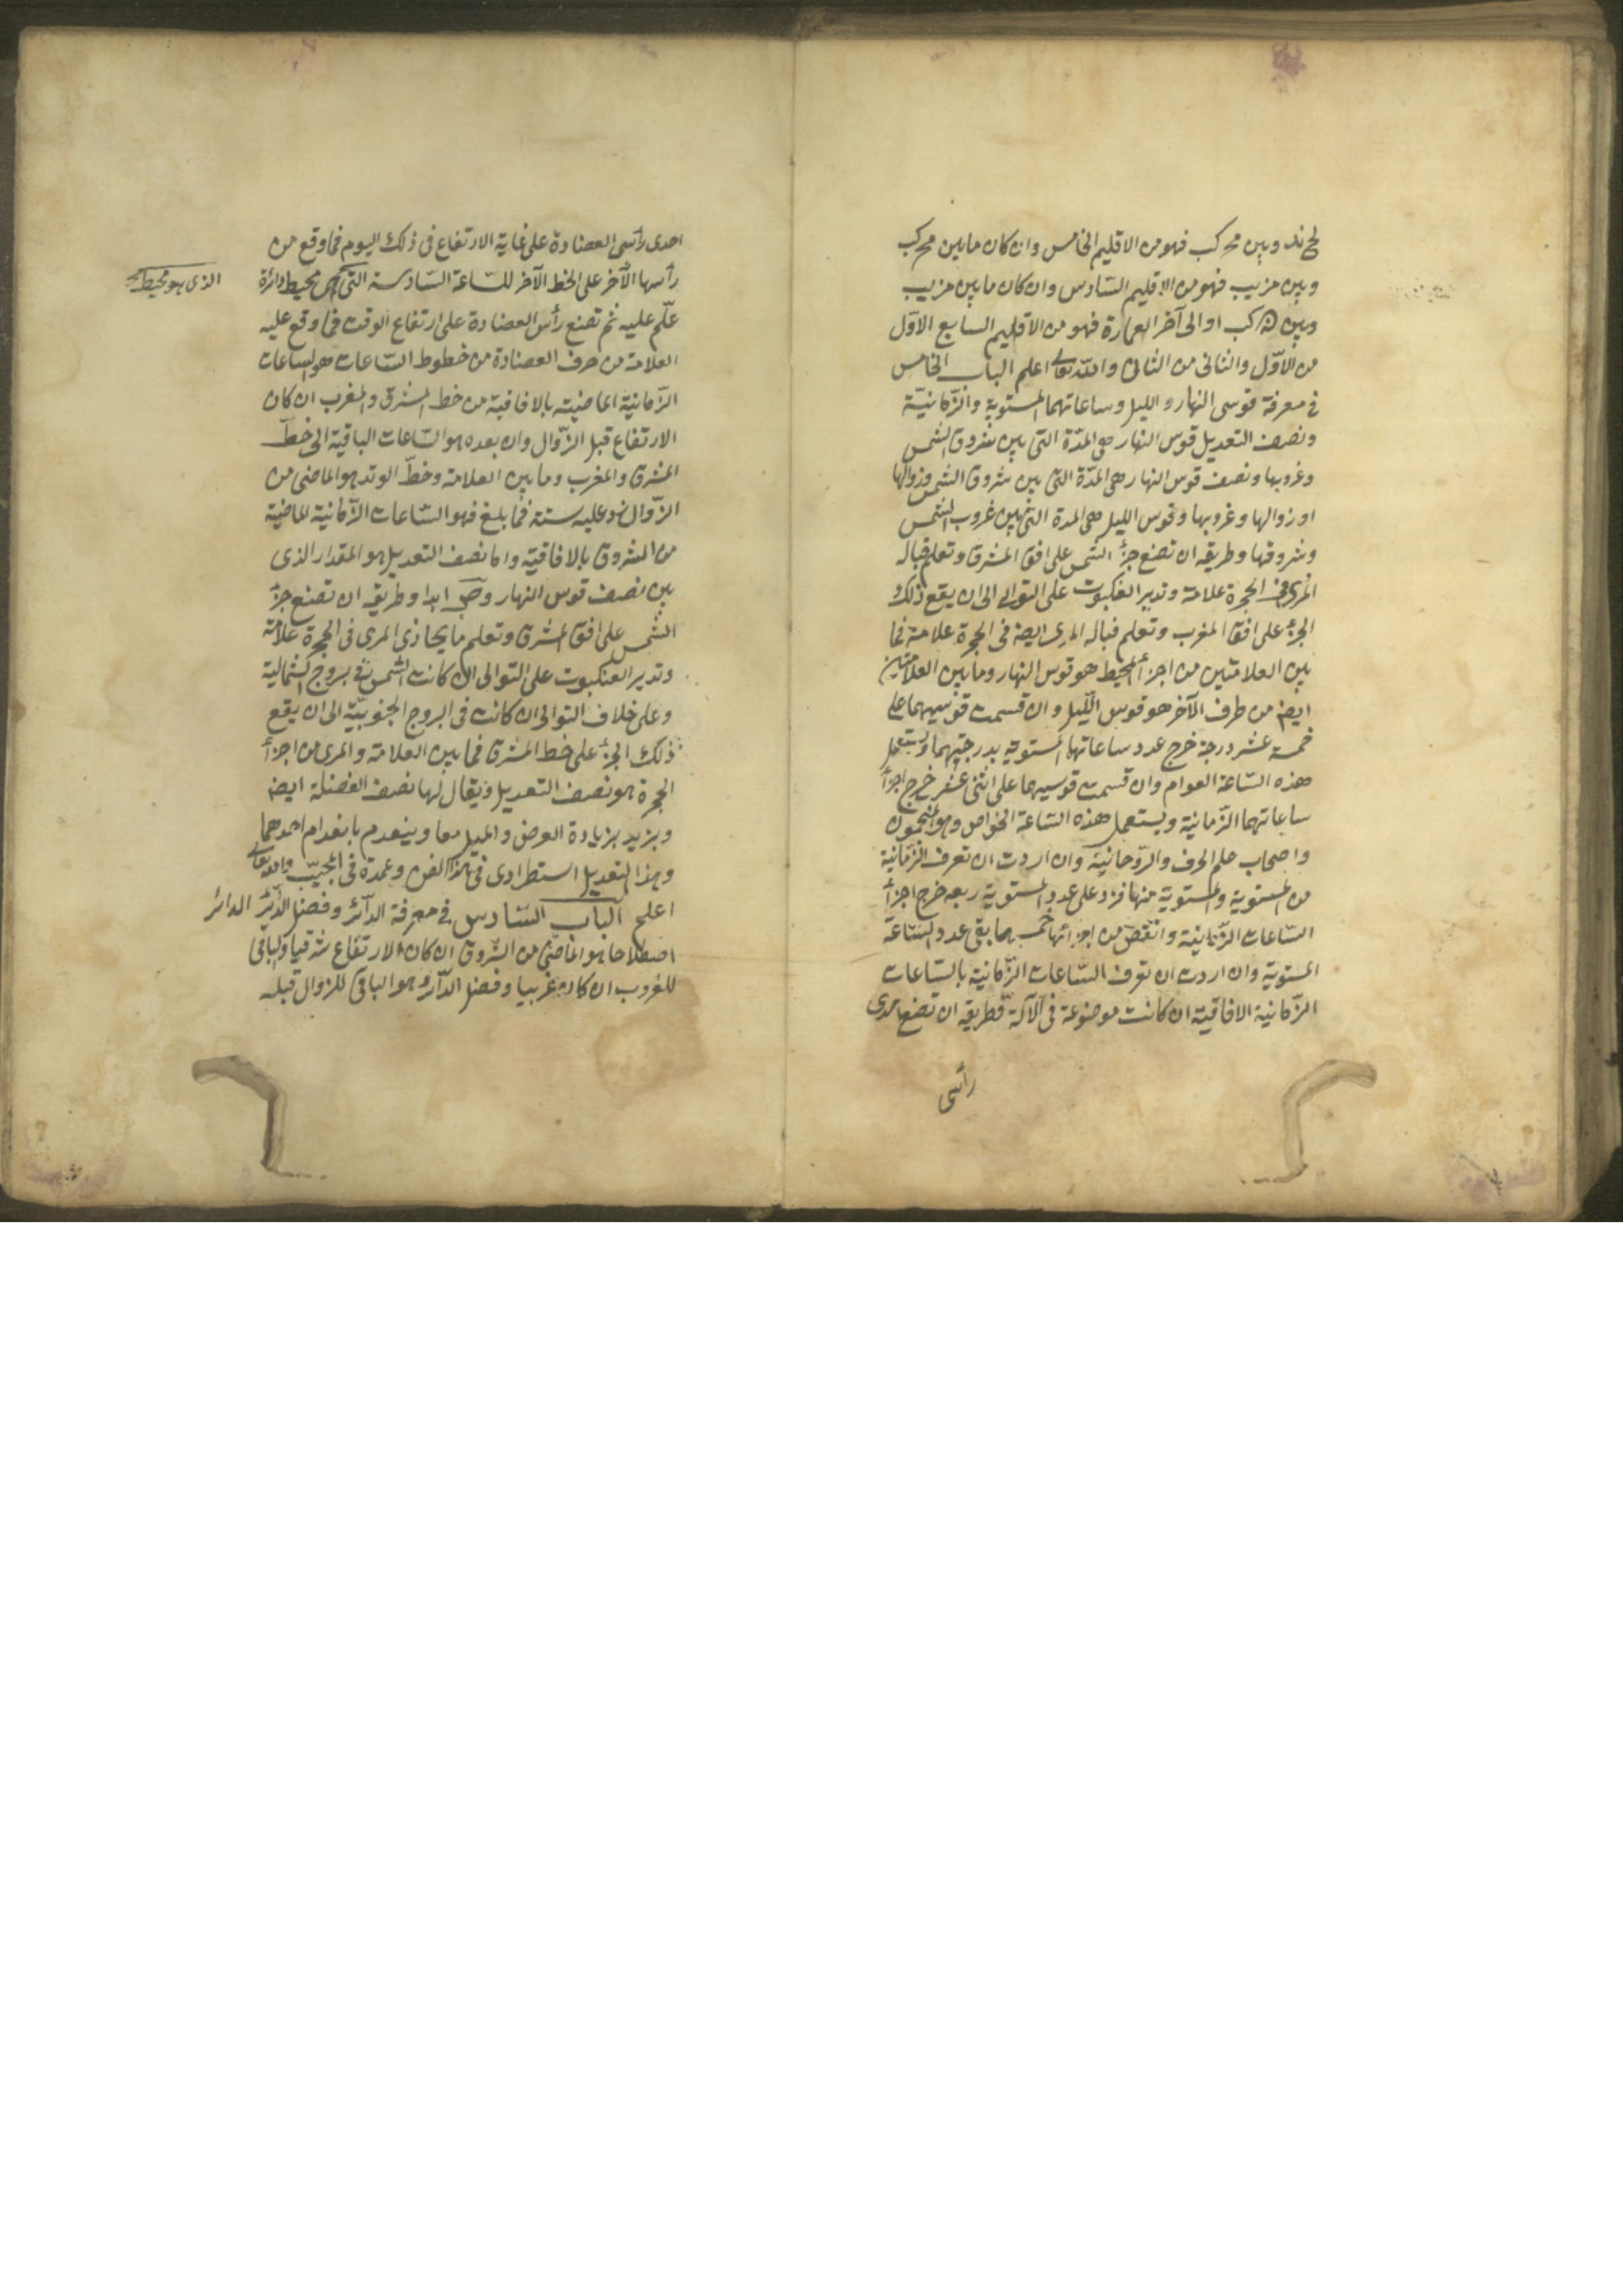 لح ند وبين مح كب فهو من الاقليم الخامس وان كان ما بين مح كب
وبين مز يب فهو من الاقليم السّادس وان كان ما بين مز يب
وبين كب او الى آخر العمارة فهو من الاقليم السابع الاوّل
من الاوّل والثانى من الثانى والله تعالى اعلم الباب الخامس
فى معرفة قوسى النهار والليل وساعاتهما المستوية والزّمانيّة
ونصف التعديل قوس النهار هى المدّة التى بين شروق الشمس
وغروبها ونصف قوس النهار هى المدّة التى بين شروق الشمس وزوالها
او زوالها وغروبها وقوس الليل هى المدة التى بين غروب الشمس
وشروقها وطريقه ان تضع جزأ الشمس على افق المشرق وتعلم قبالة
المرى فى الحجرة علامة وتدير العنكبوت على التوالى الى ان يقع ذلك
الجزء على افق المغرب وتعلم قبالة المرى ايضا فى الحجرة علامة فما
بين العلامتين من اجزأ المحيط هو قوس النهار وما بين العلامتين
ايضا من طرف الآخر هو قوس اللّيل وان قسمت قوسيهما على
خمسة عشر درجة خرج عدد ساعاتهما المستوية بدرجتيهما ويستعمل
هذه السّاعة العوام وان قسمت قوسيهما على اثنى عشر خرج اجزأ
ساعاتهما الزّمانية ويستعمل هذه الساعة الخواص وهو المنجمون
واصحاب علم الحرف والرّوحانية وان اردت ان تعرف الزّمانية
من المستوية والمستوية منها فزد على عدد المستوية ربعه خرج اجزأ
السّاعات الزّمانية وانقص من اجزائها خمسها بقى عدد السّاعة
المستوية وان اردت ان تعرف السّاعات الزّمانية بالسّاعات
الزّمانية الافاقية ان كانت موضوعة فى الآلة فطريقه ان تضع احدى
رأسى
احدى رأسى العضادة على غاية الارتفاع فى ذلك اليوم فما وقع من
رأسها الآخر على الخط الآخر للسّاعة السّادسة التى هى محيط دائرة
الذى هو محيط
علّم عليه ثم تضع رأس العضادة على ارتفاع الوقت فما وقع عليه
العلامة من حرف العضادة من خطوط السّاعات هو الساعات
الزّمانية الماضية بالافاقية من خط المشرق والمغرب ان كان
الارتفاع قبل الزّوال وان بعده هو السّاعات الباقية الى خطّ
المشرق والمغرب وما بين العلامة وخطّ الوتد هو الماضى من
الزّوال زد عليه ستة فما بلغ فهو السّاعات الزّمانية الماضية
من الشروق بالافاقية واما نصف التعديل هو المقدار الذى
بين نصف قوس النهار وص ابدا وطريقه ان تضع جزأ
الشمس على افق المشرق وتعلم ما يحاذى المرى فى الحجرة علامة
وتدير العنكبوت على التوالى ان كانت الشمس فى بروج الشمالية
وعلى خلاف التوالى ان كانت فى البروج الجنوبيّة الى ان يقع
ذلك الجزء على خط المشرق فما بين العلامة والمرى من اجزأ
الحجرة هو نصف التعديل ويقال لها نصف الفضلة ايضا
ويزيد بزيادة العرض والميل معا وينعدم بانعدام احدهما
وهذا التعديل استطرادى فى هذا الفن وعمدة فى المجيّب والله تعالى
اعلم الباب السّادس فى معرفة الدّائر وفضل الدّائر الدائر
اصطلاحا هو الماضى من الشّروق ان كان الارتفاع شرقيا والباقى
للغروب ان كان غربيا وفضل الدّائر هو الباقى للزوال قبله